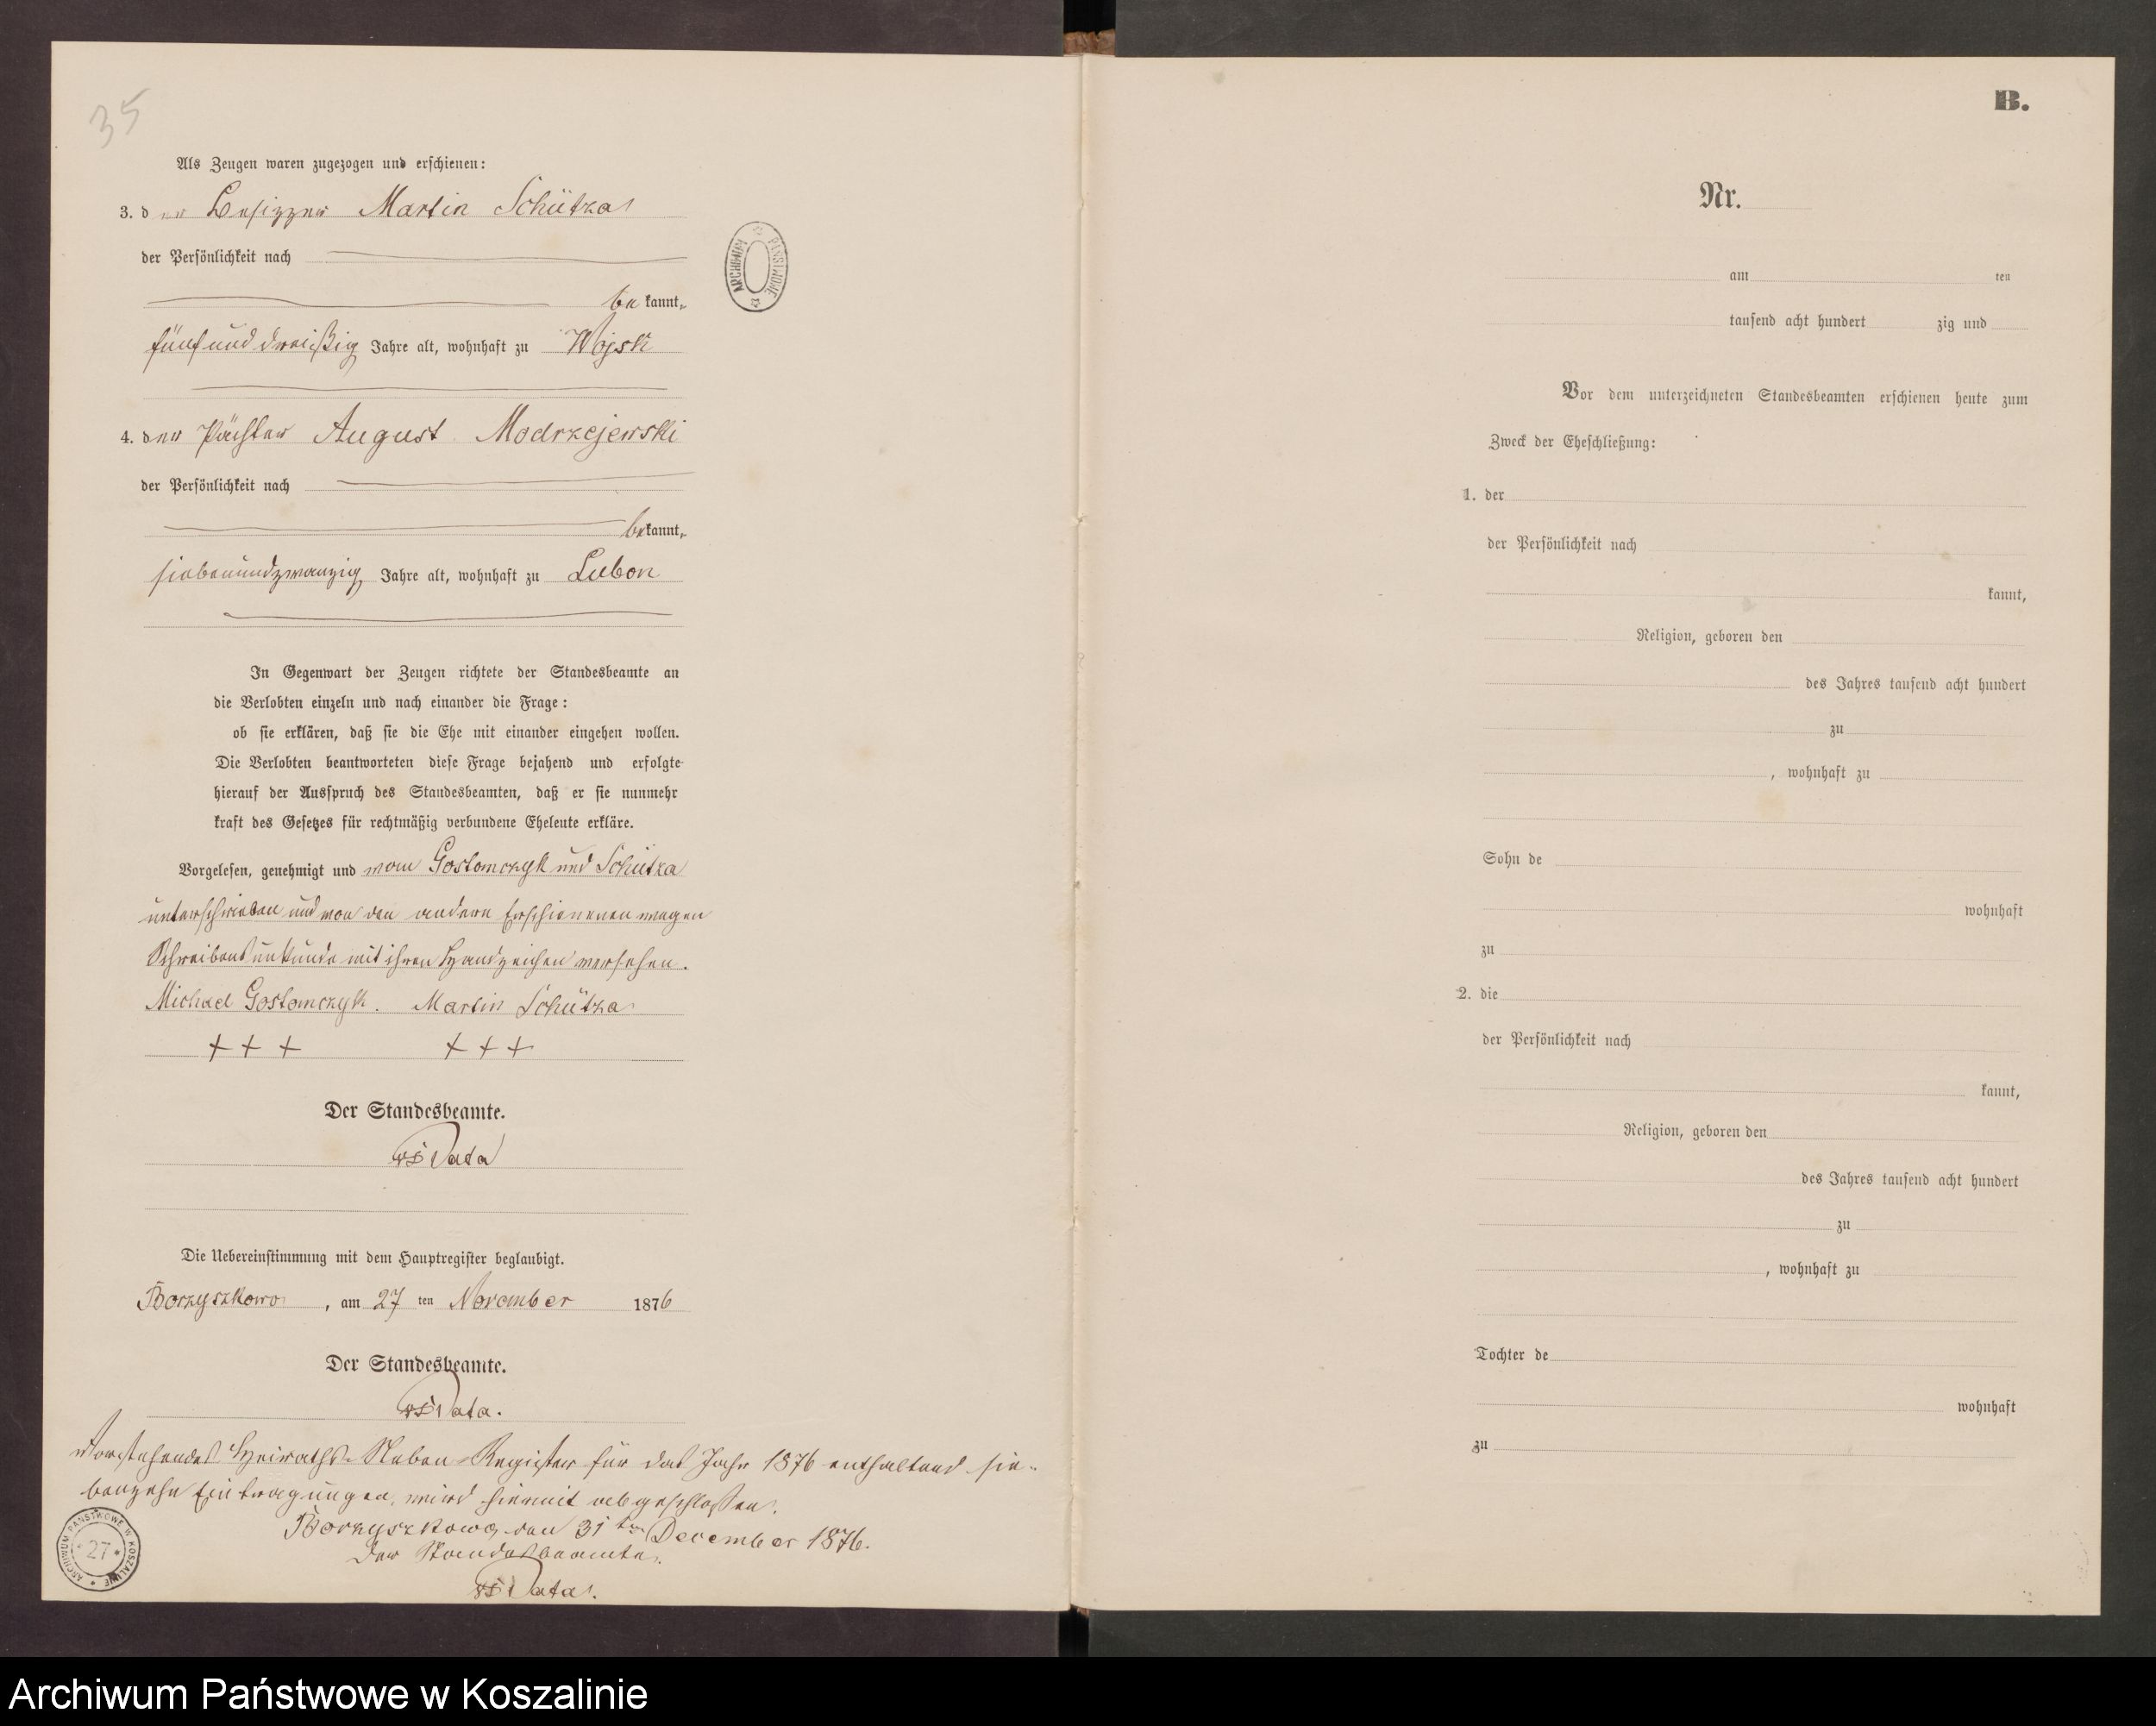 35
Als Zeugen waren zugezogen und erschienen:
3. der Besizzer Martin Schützka
der Persönlichkeit nach
be kannt,
fünfunddreißig Jahre alt, wohnhaft zu Wojsk
4. der Pächter August Modrzejewski
der Persönlichkeit nach
bekannt,
siebenundzwanzig Jahre alt, wohnhaft zu Lubon
In Gegenwart der Zeugen richtete der Standesbeamte an
die Verlobten einzeln und nach einander die Frage:
ob sie erklären, daß sie die Ehe mit einander eingehen wollen.
Die Verlobten beantworteten diese Frage bejahend und erfolgte
hierauf der Ausspruch des Standesbeamten, daß er sie nunmehr
kraft des Gesetzes für rechtmäßig verbundene Eheleute erkläre.
Vorgelesen, genehmigt und vom Gostomczyk und Schützka
unterschrieben und von den andern Erschienenen wegen
Schreibensunkunde mit ihren Handzeichen versehen.
Michael Gostomczyk. Martin Schützka
+ + + + + +
Der Standesbeamte.
Die Uebereinstimmung mit dem Hauptregister beglaubigt.
Borzyszkowo, am 27 ten November 1876
Der Standesbeamte.
Vorstehendes Heiraths-Neben-Register für das Jahr 1876 enthaltend sie-
benzehn Eintragungen, wird hiermit abgeschlossen.
Borzyszkowo, den 31ten December 1876.
Der Standesbeamte.
ARCHIWUM PAŃSTWOWE
ARCHIWUM PAŃSTWOWE W KOSZALINIE
27
B.
Nr.
am ten
tausend acht hundert zig und
Vor dem unterzeichneten Standesbeamten erschienen heute zum
Zweck der Eheschließung:
1. der
der Persönlichkeit nach
kannt,
Religion, geboren den
des Jahres tausend acht hundert
zu
, wohnhaft zu
Sohn de
wohnhaft
zu
2. die
der Persönlichkeit nach
kannt,
Religion, geboren den
des Jahres tausend acht hundert
zu
, wohnhaft zu
Tochter de
wohnhaft
zu
Archiwum Państwowe w Koszalinie